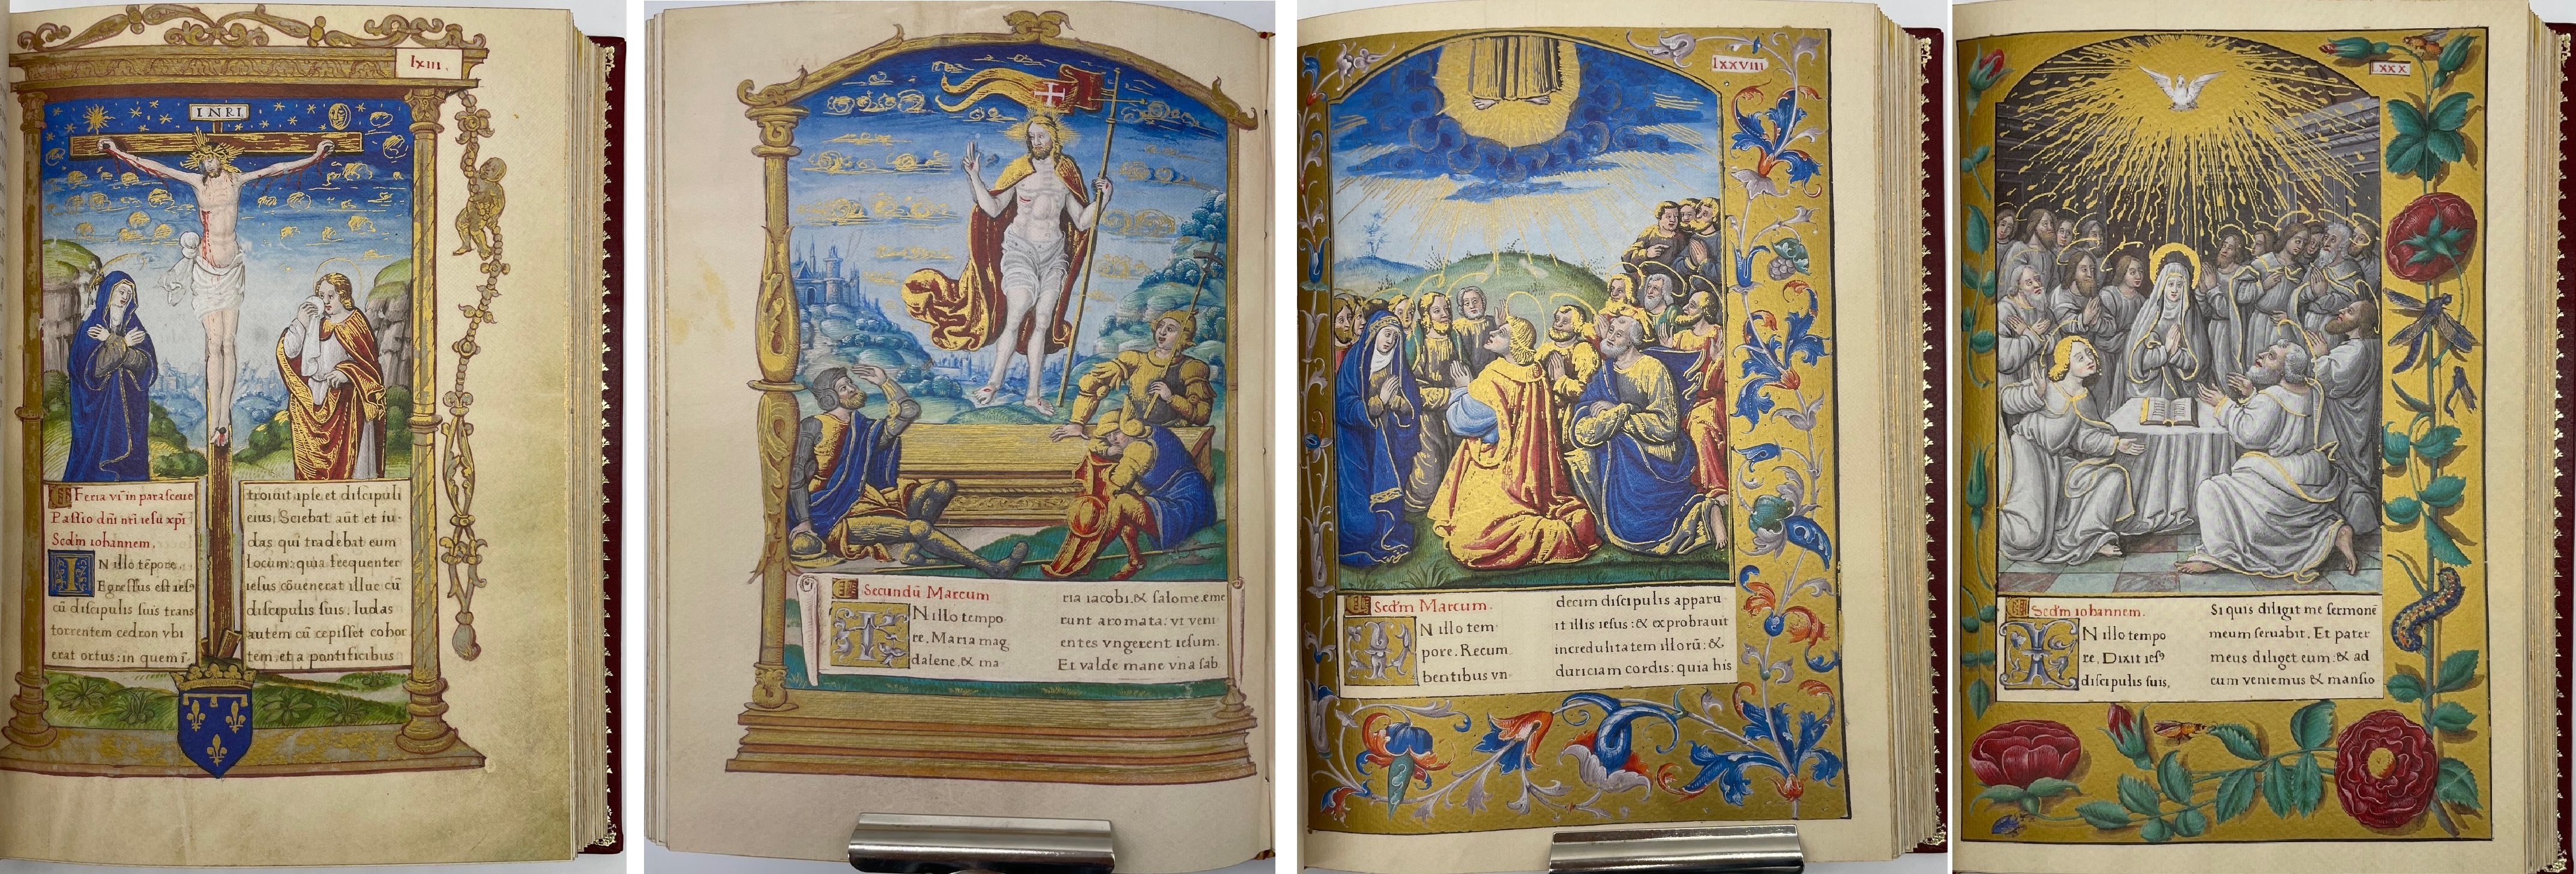 lxiii.
INRI
Feria vi in parasceue
Passio dñi nri iesu xpi
Scdm iohannem.
IN illo tēpore
Egressus est iesꝰ
cū discipulis suis trans
torrentem cedron vbi
erat ortus: in quem ī-
troiuit ipse et discipuli
eius. Sciebat aūt et iu-
das qui tradebat eum
locum: quia frequenter
iesus cōuenerat illuc cū
discipulis suis. Iudas
autem cū cepisset cohor
tem, et a pontificibus
Secundū Marcum
IN illo tempo
re. Maria mag
dalene. & ma
ria iacobi. & salome. eme
runt aromata: vt veni
entes vngerent iesum.
Et valde mane vna sab
lxxviii
Scdm Marcum.
IN illo tem-
pore. Recum
bentibus vn-
decim discipulis apparu-
it illis iesus: & exprobrauit
incredulitatem illorū: &
duriciam cordis: quia his
LXXX
Scdm iohannem.
IN illo tempo
re. Dixit iesꝰ
discipulis suis.
Si quis diligit me sermonē
meum seruabit. Et pater
meus diliget eum: & ad
eum veniemus & mansio